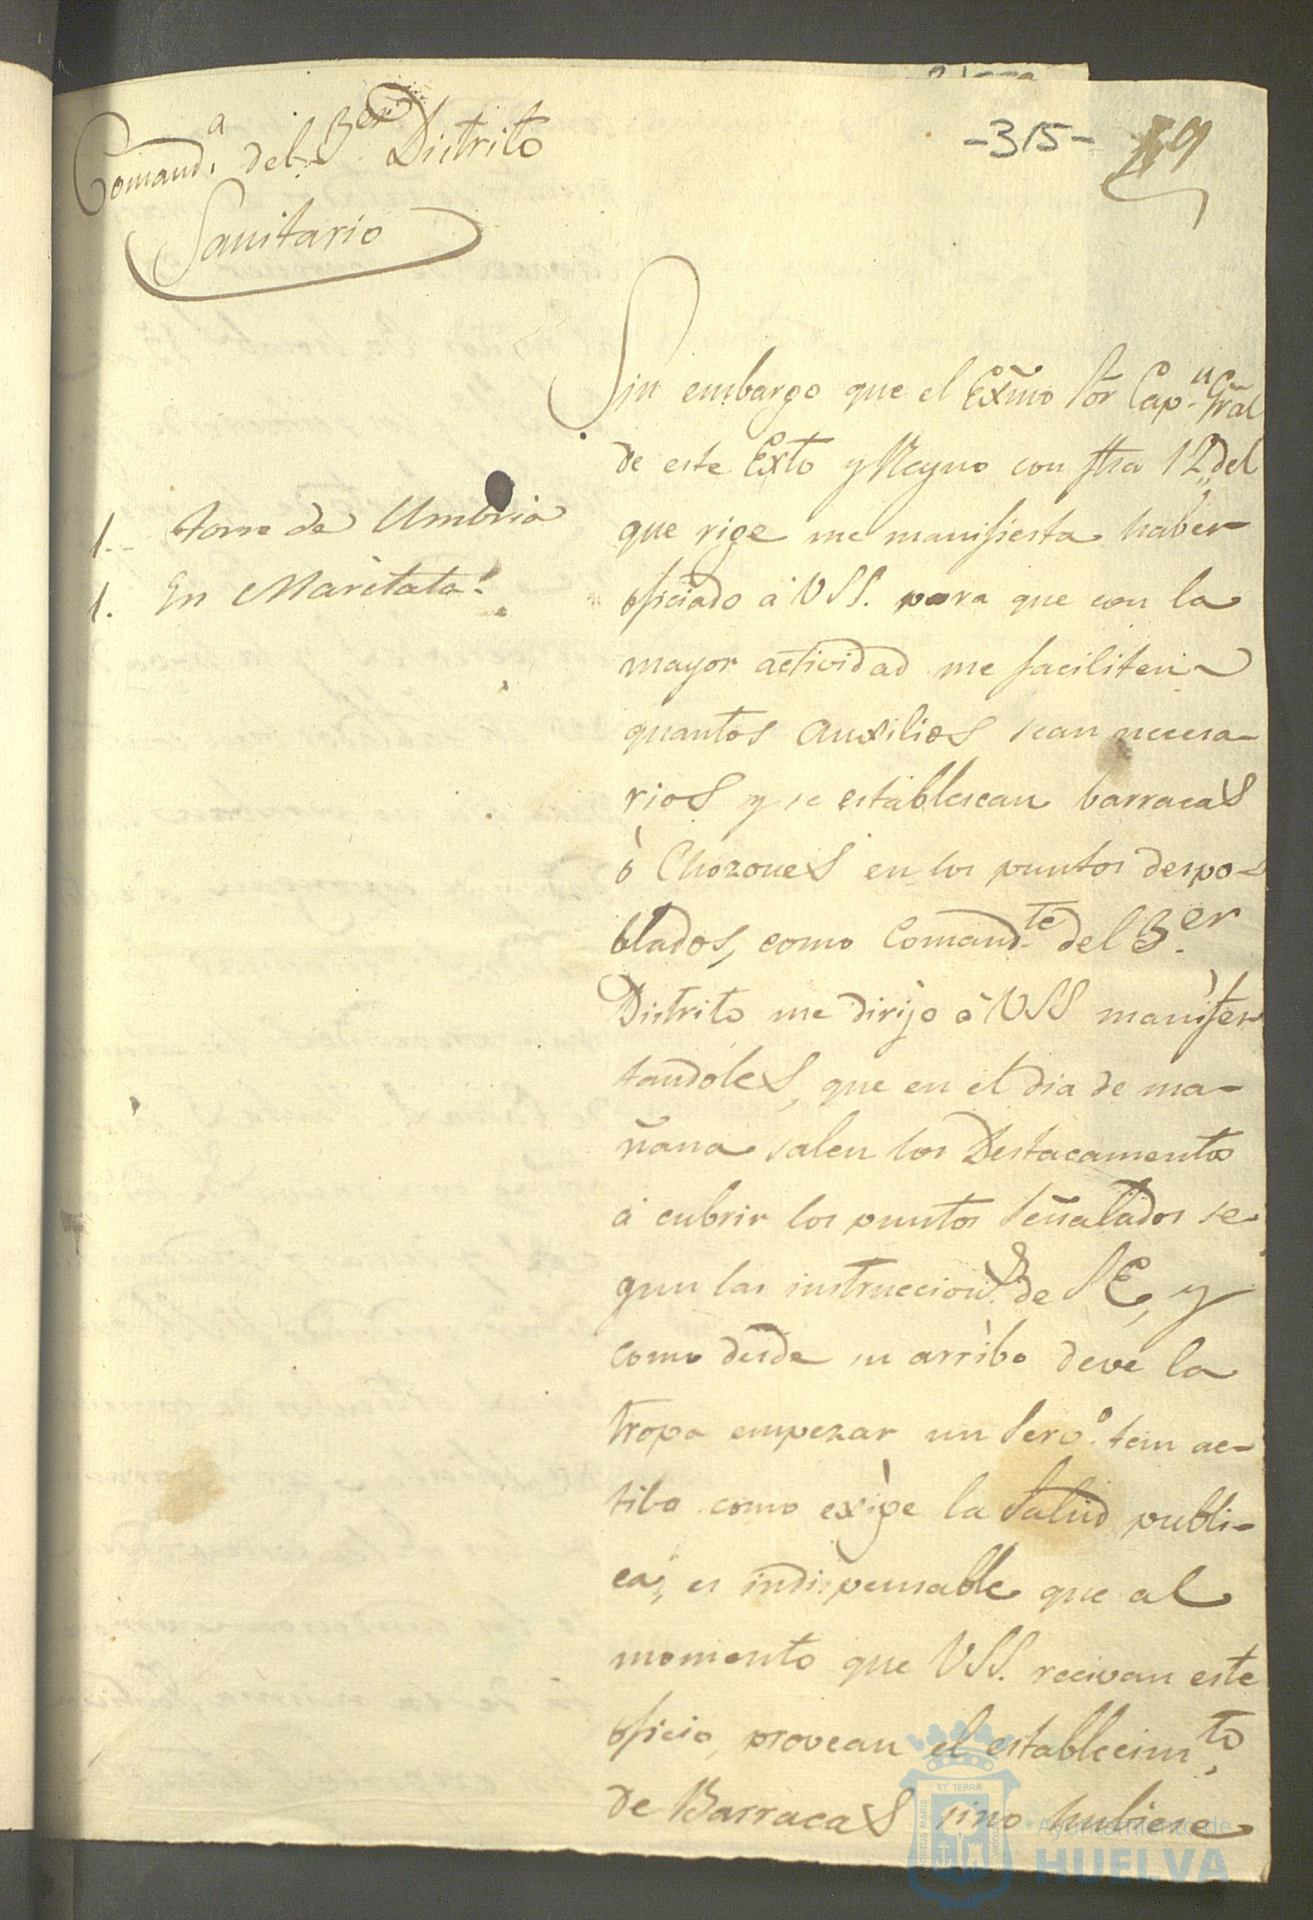 Comand.ª del 3er Distrito
Sanitario
-315-
1.. torre de Umbria
1. En Marítata.
Sin embargo que el Exmo Sor Capn. Gral
de este Exto y Reyno con fha 12,, del
que rige me manifiesta haber
oficiado à VSS. para que con la
mayor actividad me faciliten
quantos auxilios sean necesa-
rios y se establescan barracas
ò Chozones en los puntos despo-
blados, como Comandte del 3.er
Distrito me dirijo à VSS manifes
tandoles, que en el dia de ma-
ñana salen los Destacamentos
à cubrir los puntos señalados se
gun las instruccions. de SE, y
como desde su arribo deve la
tropa empezar un Servo. tan ac-
tibo como exige la Salud publi-
ca, es indispensable que al
momento que VSS. recivan este
oficio, provean el establecimto
de Barracas sino hubiere
ET TERRÆ
PORTUS MARIS
CUSTODIA
Ayuntamiento de
HUELVA